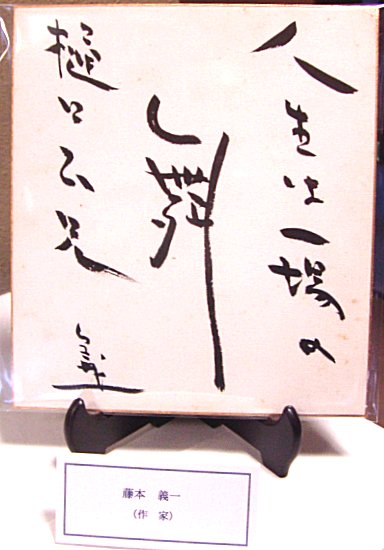 人生は一場の
舞
樋口 兄
義一
藤本 義一
(作 家)